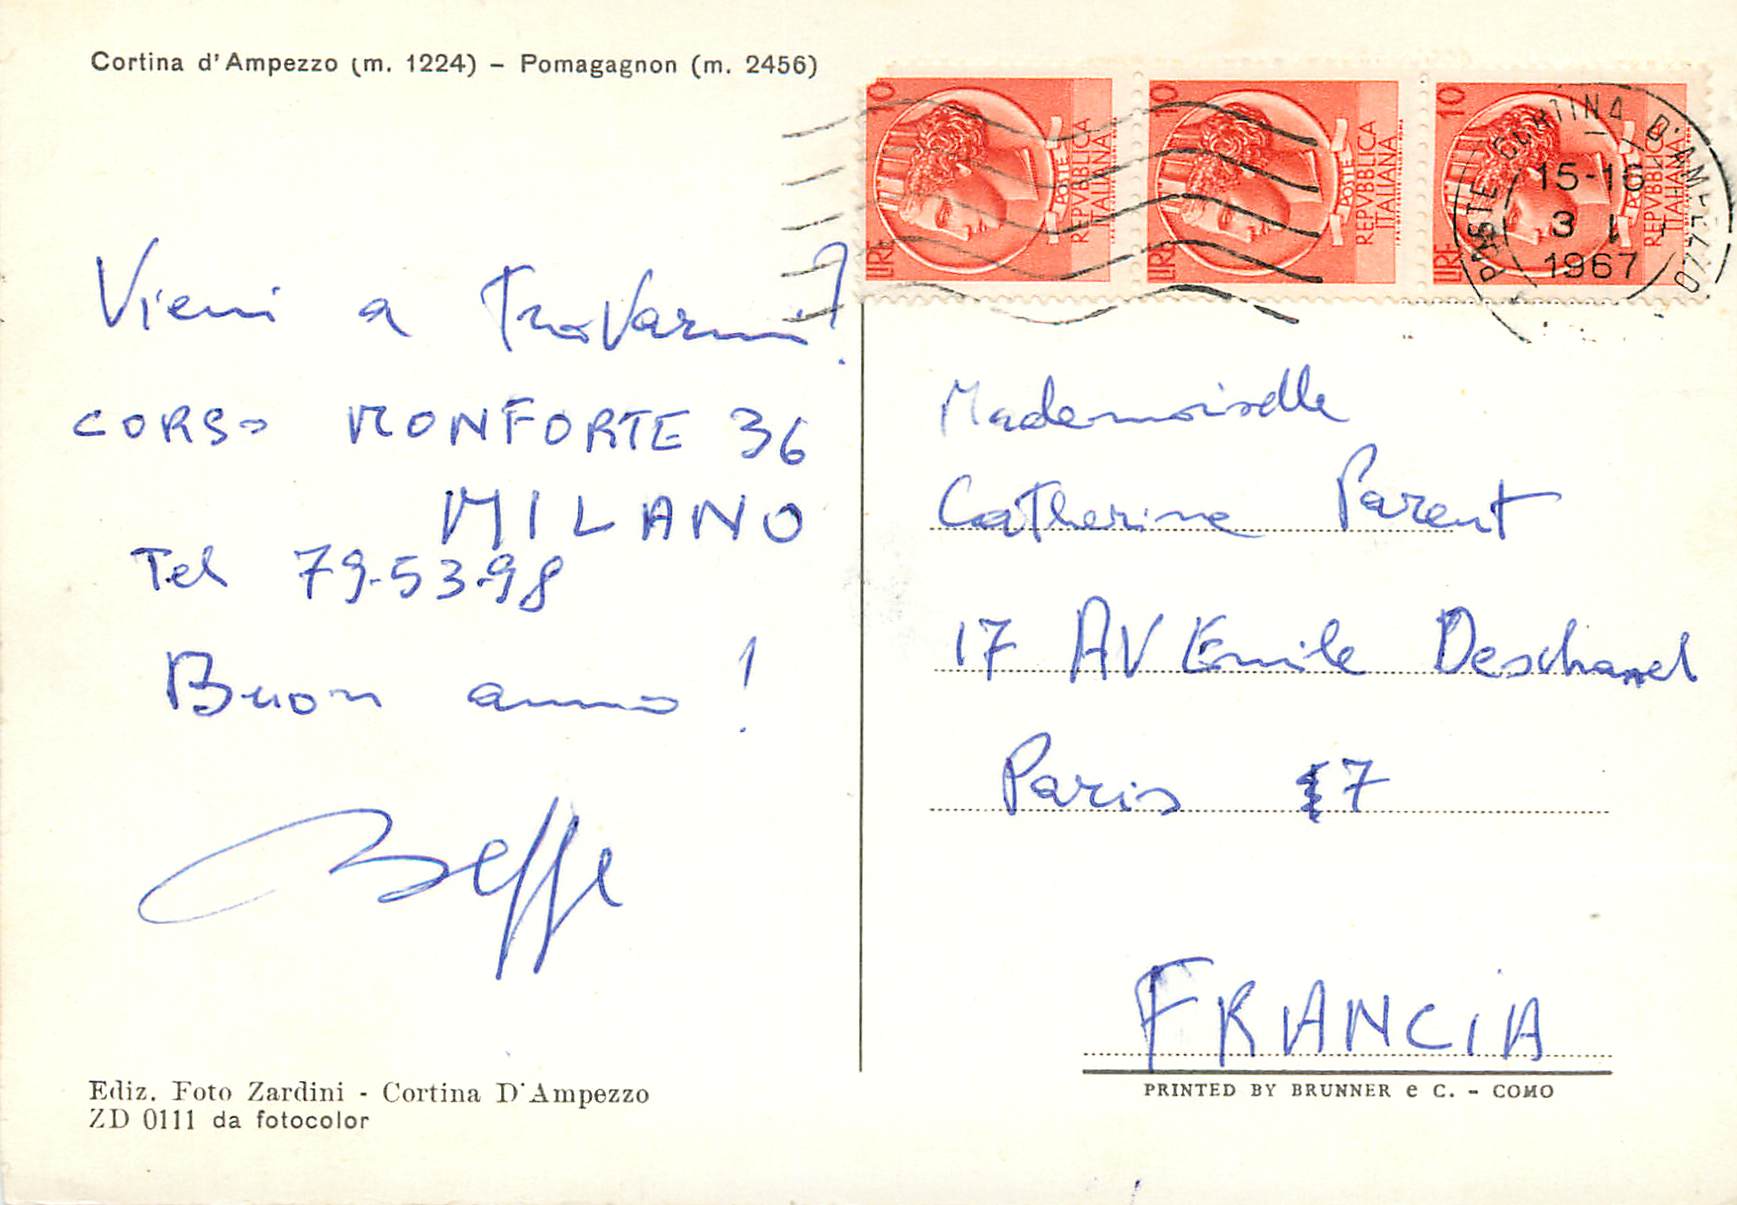 Cortina d'Ampezzo (m. 1224) – Pomagagnon (m. 2456)
Vieni a trovarmi!
CORSO MONFORTE 36
MILANO
Tel 79-53-98
Buon anno!
Beppe
Ediz. Foto Zardini - Cortina D'Ampezzo
ZD 0111 da fotocolor
10
LIRE
POSTE
REPVBBLICA
ITALIANA
10
LIRE
POSTE
REPVBBLICA
ITALIANA
10
LIRE
POSTE
REPVBBLICA
ITALIANA
POSTE CORTINA D'AMPEZZO
15-16
3 I
1967
Mademoiselle
Catherine Parent
17 AV Emile Deschanel
Paris 7
FRANCIA
PRINTED BY BRUNNER e C. - COMO